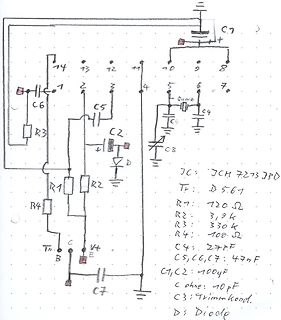 C1
+
14 13 12 11 10 9 8
1 2 3 4 5 6 7
C6
C5
R3
C2
+
C4
D
C3
R1
R2
R4
Tr
B
C
V+
E
C7
R1: 120 Ω
R2: 3,9k
R3: 330k
R4: 100 Ω
C4: 27pF
C5,C6,C7: 47nF
C1,C2: 100µF
C ohne: 10pF
C3: Trimmkond.
D: Diode